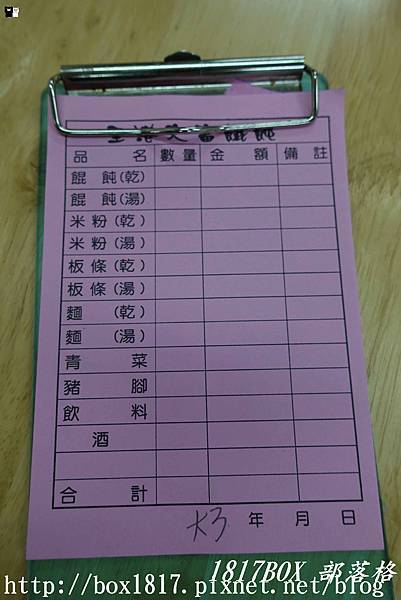 品 名 數量 金 額 備 註
餛 飩(乾)
餛 飩(湯)
米 粉(乾)
米 粉(湯)
板 條(乾)
板 條(湯)
麵 (乾)
麵 (湯)
青 菜
豬 腳
飲 料
酒
合 計
年 月 日
1817BOX 部落格
http://box1817.pixnet.net/blog